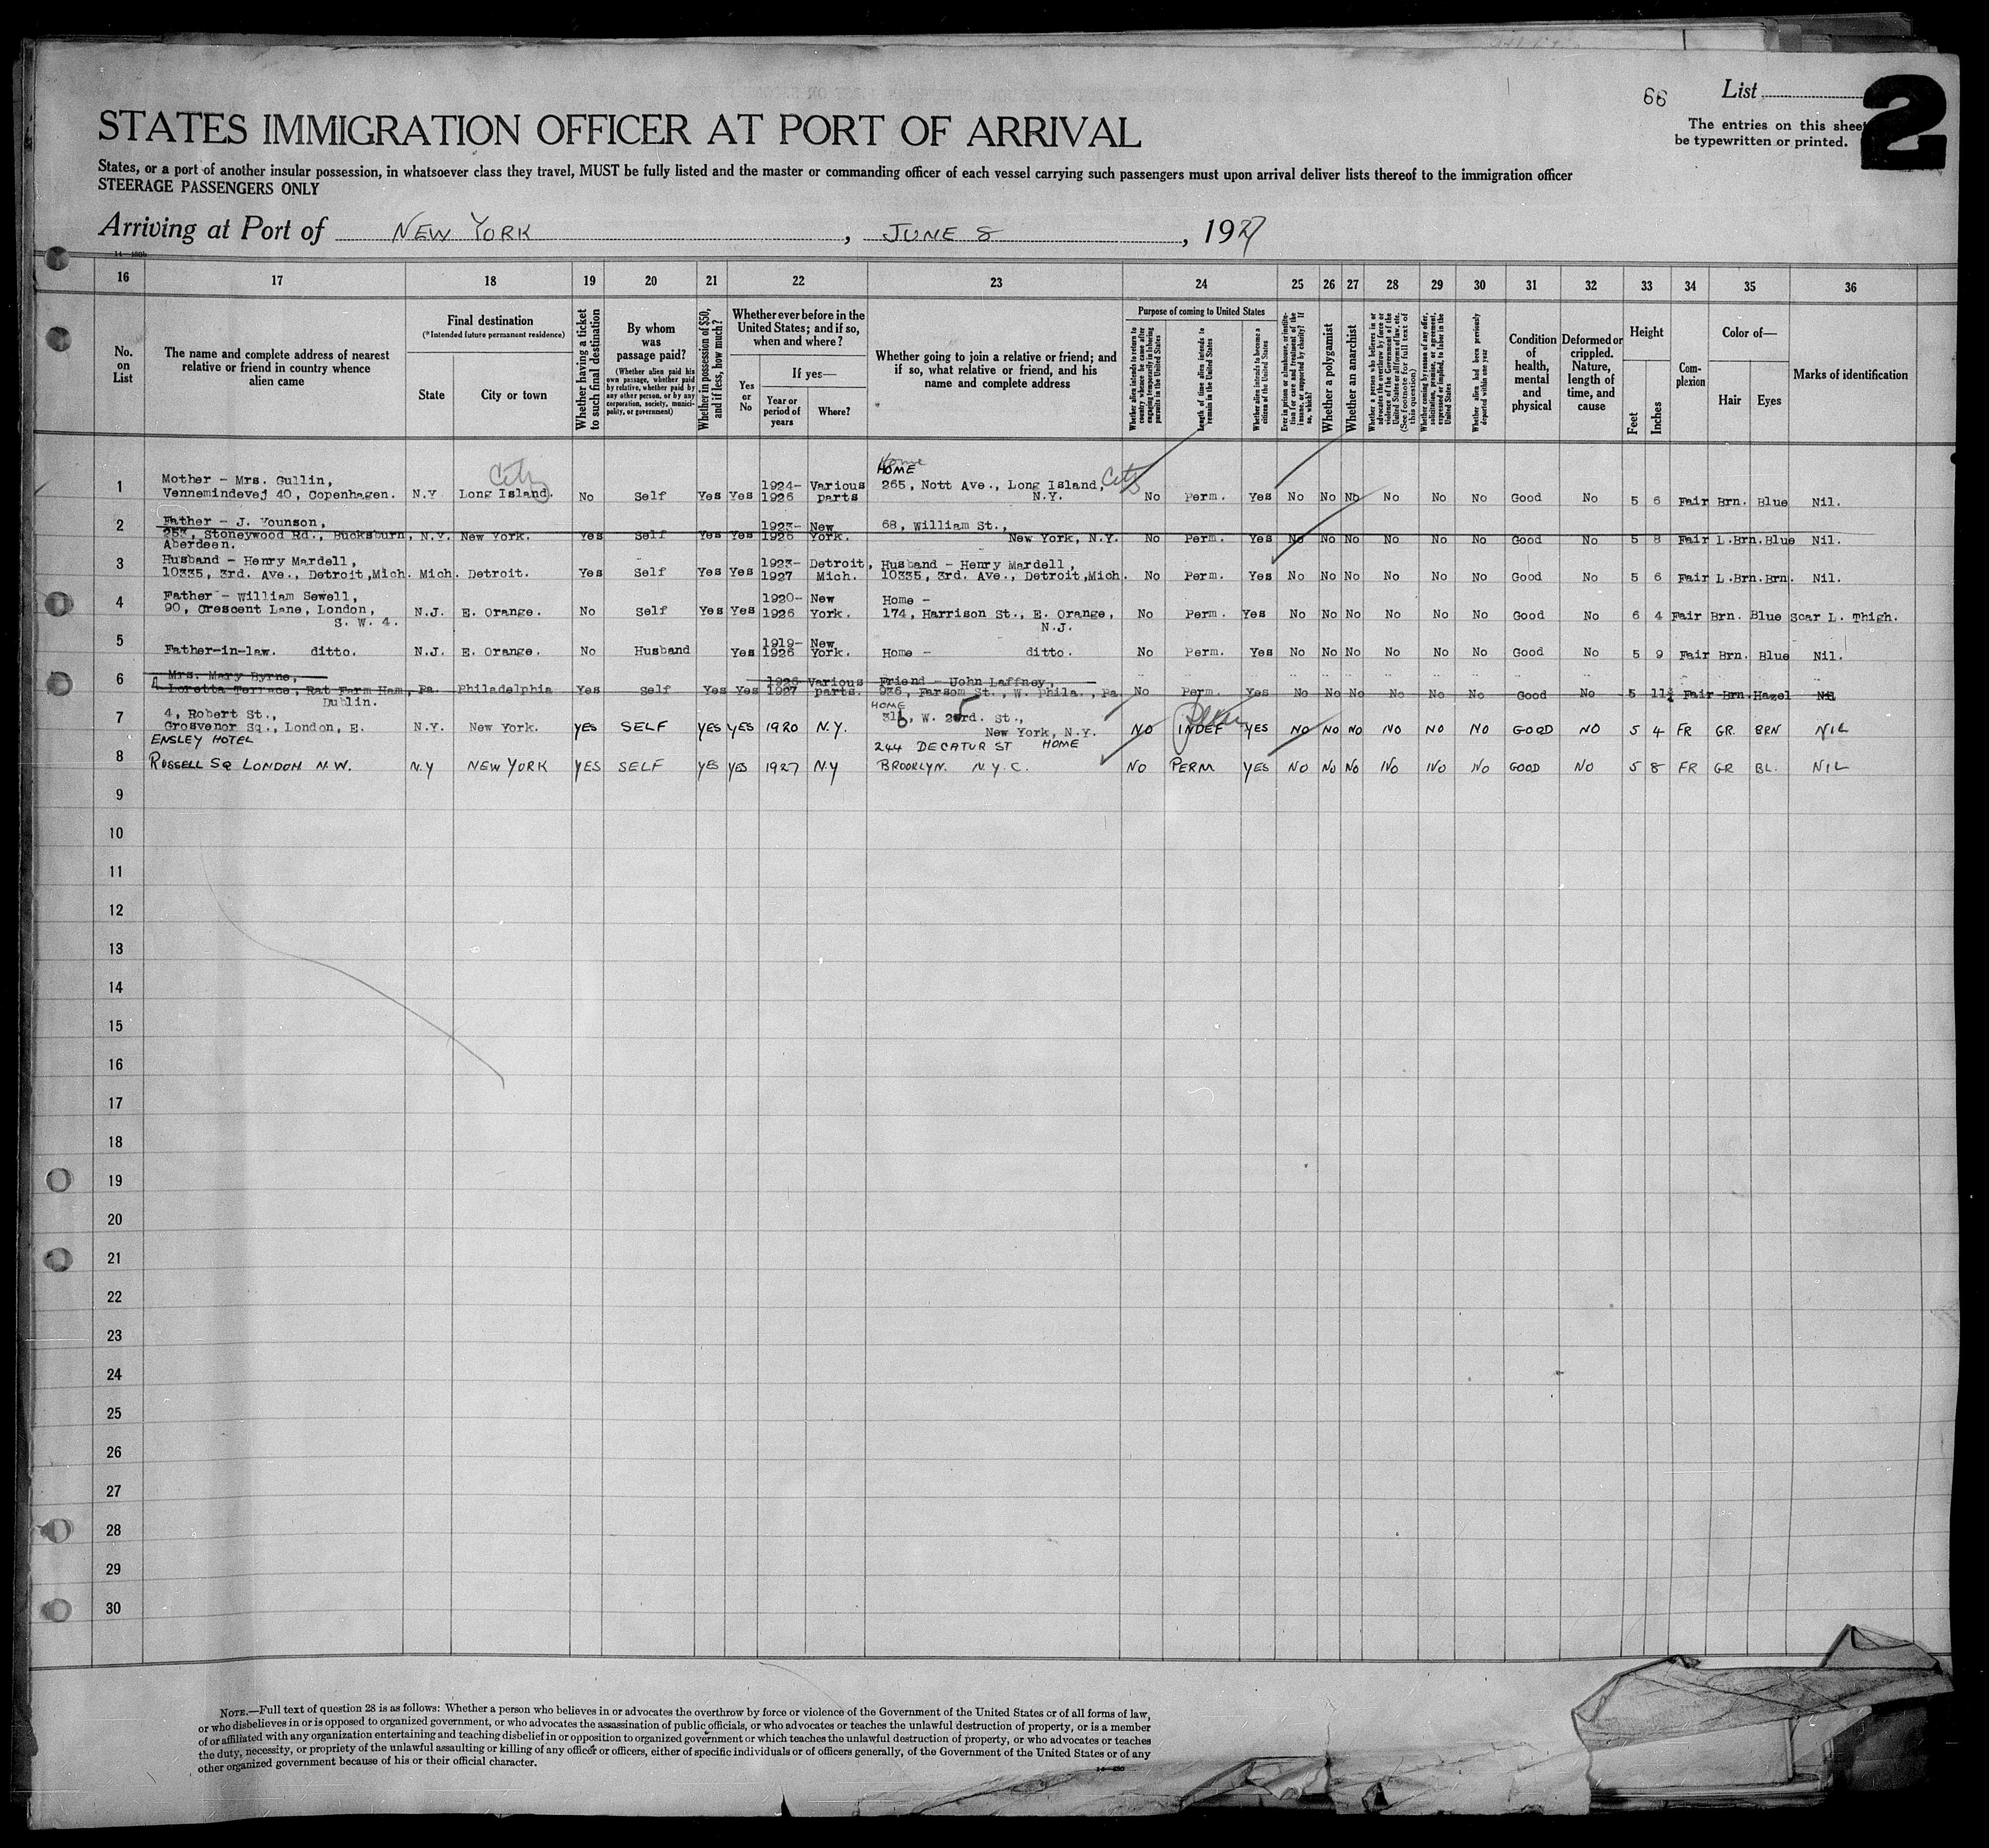 66
List
2
The entries on this sheet
be typewritten or printed.
STATES IMMIGRATION OFFICER AT PORT OF ARRIVAL
States, or a port of another insular possession, in whatsoever class they travel, MUST be fully listed and the master or commanding officer of each vessel carrying such passengers must upon arrival deliver lists thereof to the immigration officer
STEERAGE PASSENGERS ONLY
Arriving at Port of NEW YORK, JUNE 8, 1927
16 17 18 19 20 21 22 23 24 25 26 27 28 29 30 31 32 33 34 35 36
No. on List
The name and complete address of nearest relative or friend in country whence alien came
Final destination
(*Intended future permanent residence)
State
City or town
Whether having a ticket to such final destination
By whom was passage paid?
(Whether alien paid his own passage, whether paid by relative, whether paid by any other person, or by any corporation, society, municipality, or government)
Whether in possession of $50, and if less, how much?
Whether ever before in the United States; and if so, when and where?
Yes or No
If yes—
Year or period of years
Where?
Whether going to join a relative or friend; and if so, what relative or friend, and his name and complete address
Purpose of coming to United States
Whether alien intends to return to country whence he came after engaging temporarily in laboring pursuits in the United States
Length of time alien intends to remain in the United States
Whether alien intends to become a citizen of the United States
Ever in prison or almshouse, or institution for care and treatment of the insane, or supported by charity? If so, which?
Whether a polygamist
Whether an anarchist
Whether a person who believes in or advocates the overthrow by force or violence of the Government of the United States or all forms of law, etc. (See footnote for full text of this question)
Whether coming by reason of any offer, solicitation, promise, or agreement, expressed or implied, to labor in the United States
Whether alien had been previously deported within one year
Condition of health, mental and physical
Deformed or crippled. Nature, length of time, and cause
Height
Feet
Inches
Complexion
Color of—
Hair
Eyes
Marks of identification
City
Home
HOME
City
1 Mother - Mrs. Gullin,
Vennemindevej 40, Copenhagen. N.Y Long Island. No Self Yes Yes 1924-1926 Various parts 265, Nott Ave., Long Island, N.Y. No Perm. Yes No No No No No No Good No 5 6 Fair Brn. Blue Nil.
2 Father - J. Younson,
253, Stoneywood Rd., Bucksburn, Aberdeen. N.Y. New York. Yes Self Yes Yes 1923-1926 New York. 68, William St., New York, N.Y. No Perm. Yes No No No No No No Good No 5 8 Fair L.Brn. Blue Nil.
3 Husband - Henry Mardell,
10335, 3rd. Ave., Detroit, Mich. Mich. Detroit. Yes Self Yes Yes 1923-1927 Detroit, Mich. Husband - Henry Mardell, 10335, 3rd. Ave., Detroit, Mich. No Perm. Yes No No No No No No Good No 5 6 Fair L.Brn. Brn. Nil.
4 Father - William Sewell,
90, Crescent Lane, London, S. W. 4. N.J. E. Orange. No Self Yes Yes 1920-1926 New York. Home - 174, Harrison St., E. Orange, N.J. No Perm. Yes No No No No No No Good No 6 4 Fair Brn. Blue Scar L. Thigh.
5 Father-in-law. ditto. N.J. E. Orange. No Husband Yes 1919-1926 New York. Home - ditto. No Perm. Yes No No No No No No Good No 5 9 Fair Brn. Blue Nil.
6 Mrs. Mary Byrne,
Loretta Terrace, Rat Farm Ham, Dublin. Pa. Philadelphia Yes Self Yes Yes 1926 1927 Various parts. Friend - John Laffney, 936, Farsom St., W. Phila., Pa. No Perm. Yes No No No No No No Good No 5 11½ Fair Brn. Hazel Nil
7 4, Robert St.,
Grosvenor Sq., London, E. N.Y. New York. YES SELF YES YES 1920 N.Y. HOME 316, W. 23rd. St., New York, N.Y. NO INDEF Perm YES NO NO NO NO NO NO GOOD NO 5 4 FR GR. BRN NIL
8 ENSLEY HOTEL
RUSSELL SQ LONDON N.W. N.Y NEW YORK YES SELF YES YES 1927 N.Y 244 DECATUR ST HOME BROOKLYN. N.Y.C. NO PERM YES NO NO NO NO NO NO GOOD NO 5 8 FR GR BL. NIL
9
10
11
12
13
14
15
16
17
18
19
20
21
22
23
24
25
26
27
28
29
30
NOTE.—Full text of question 28 is as follows: Whether a person who believes in or advocates the overthrow by force or violence of the Government of the United States or of all forms of law,
or who disbelieves in or is opposed to organized government, or who advocates the assassination of public officials, or who advocates or teaches the unlawful destruction of property, or is a member
of or affiliated with any organization entertaining and teaching disbelief in or opposition to organized government or which teaches the unlawful destruction of property, or who advocates or teaches
the duty, necessity, or propriety of the unlawful assaulting or killing of any officer or officers, either of specific individuals or of officers generally, of the Government of the United States or of any
other organized government because of his or their official character.